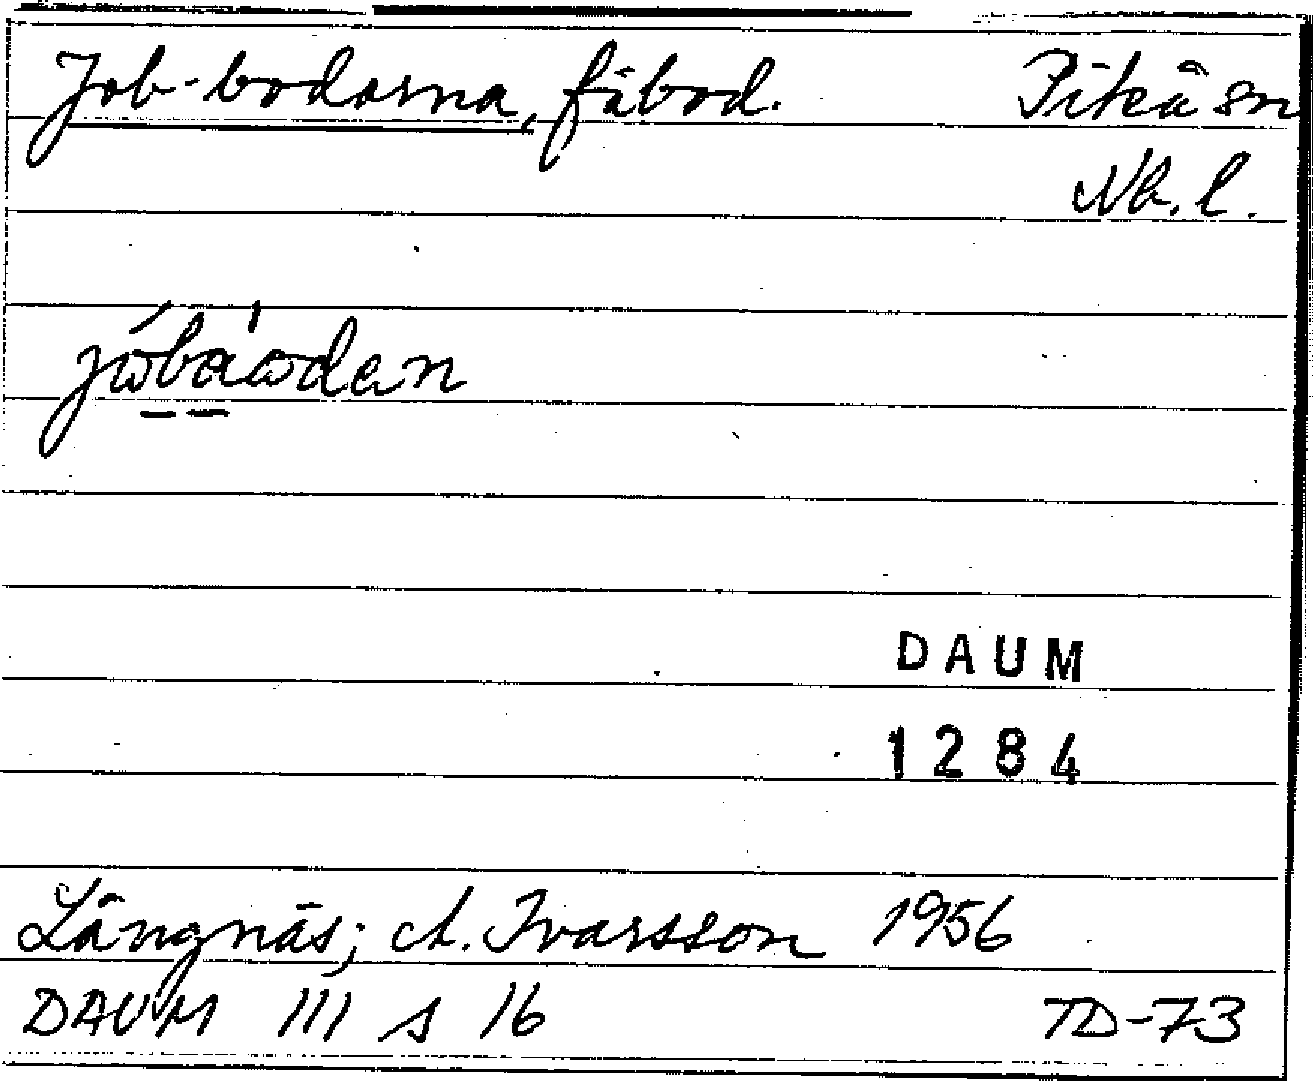 Job-bodarna, fäbod. Piteå sn
Nb. l.
jöbáodan
DAUM
1284
Långnäs; A. Ivarsson 1956
DAUM 111 s 16 TD-73